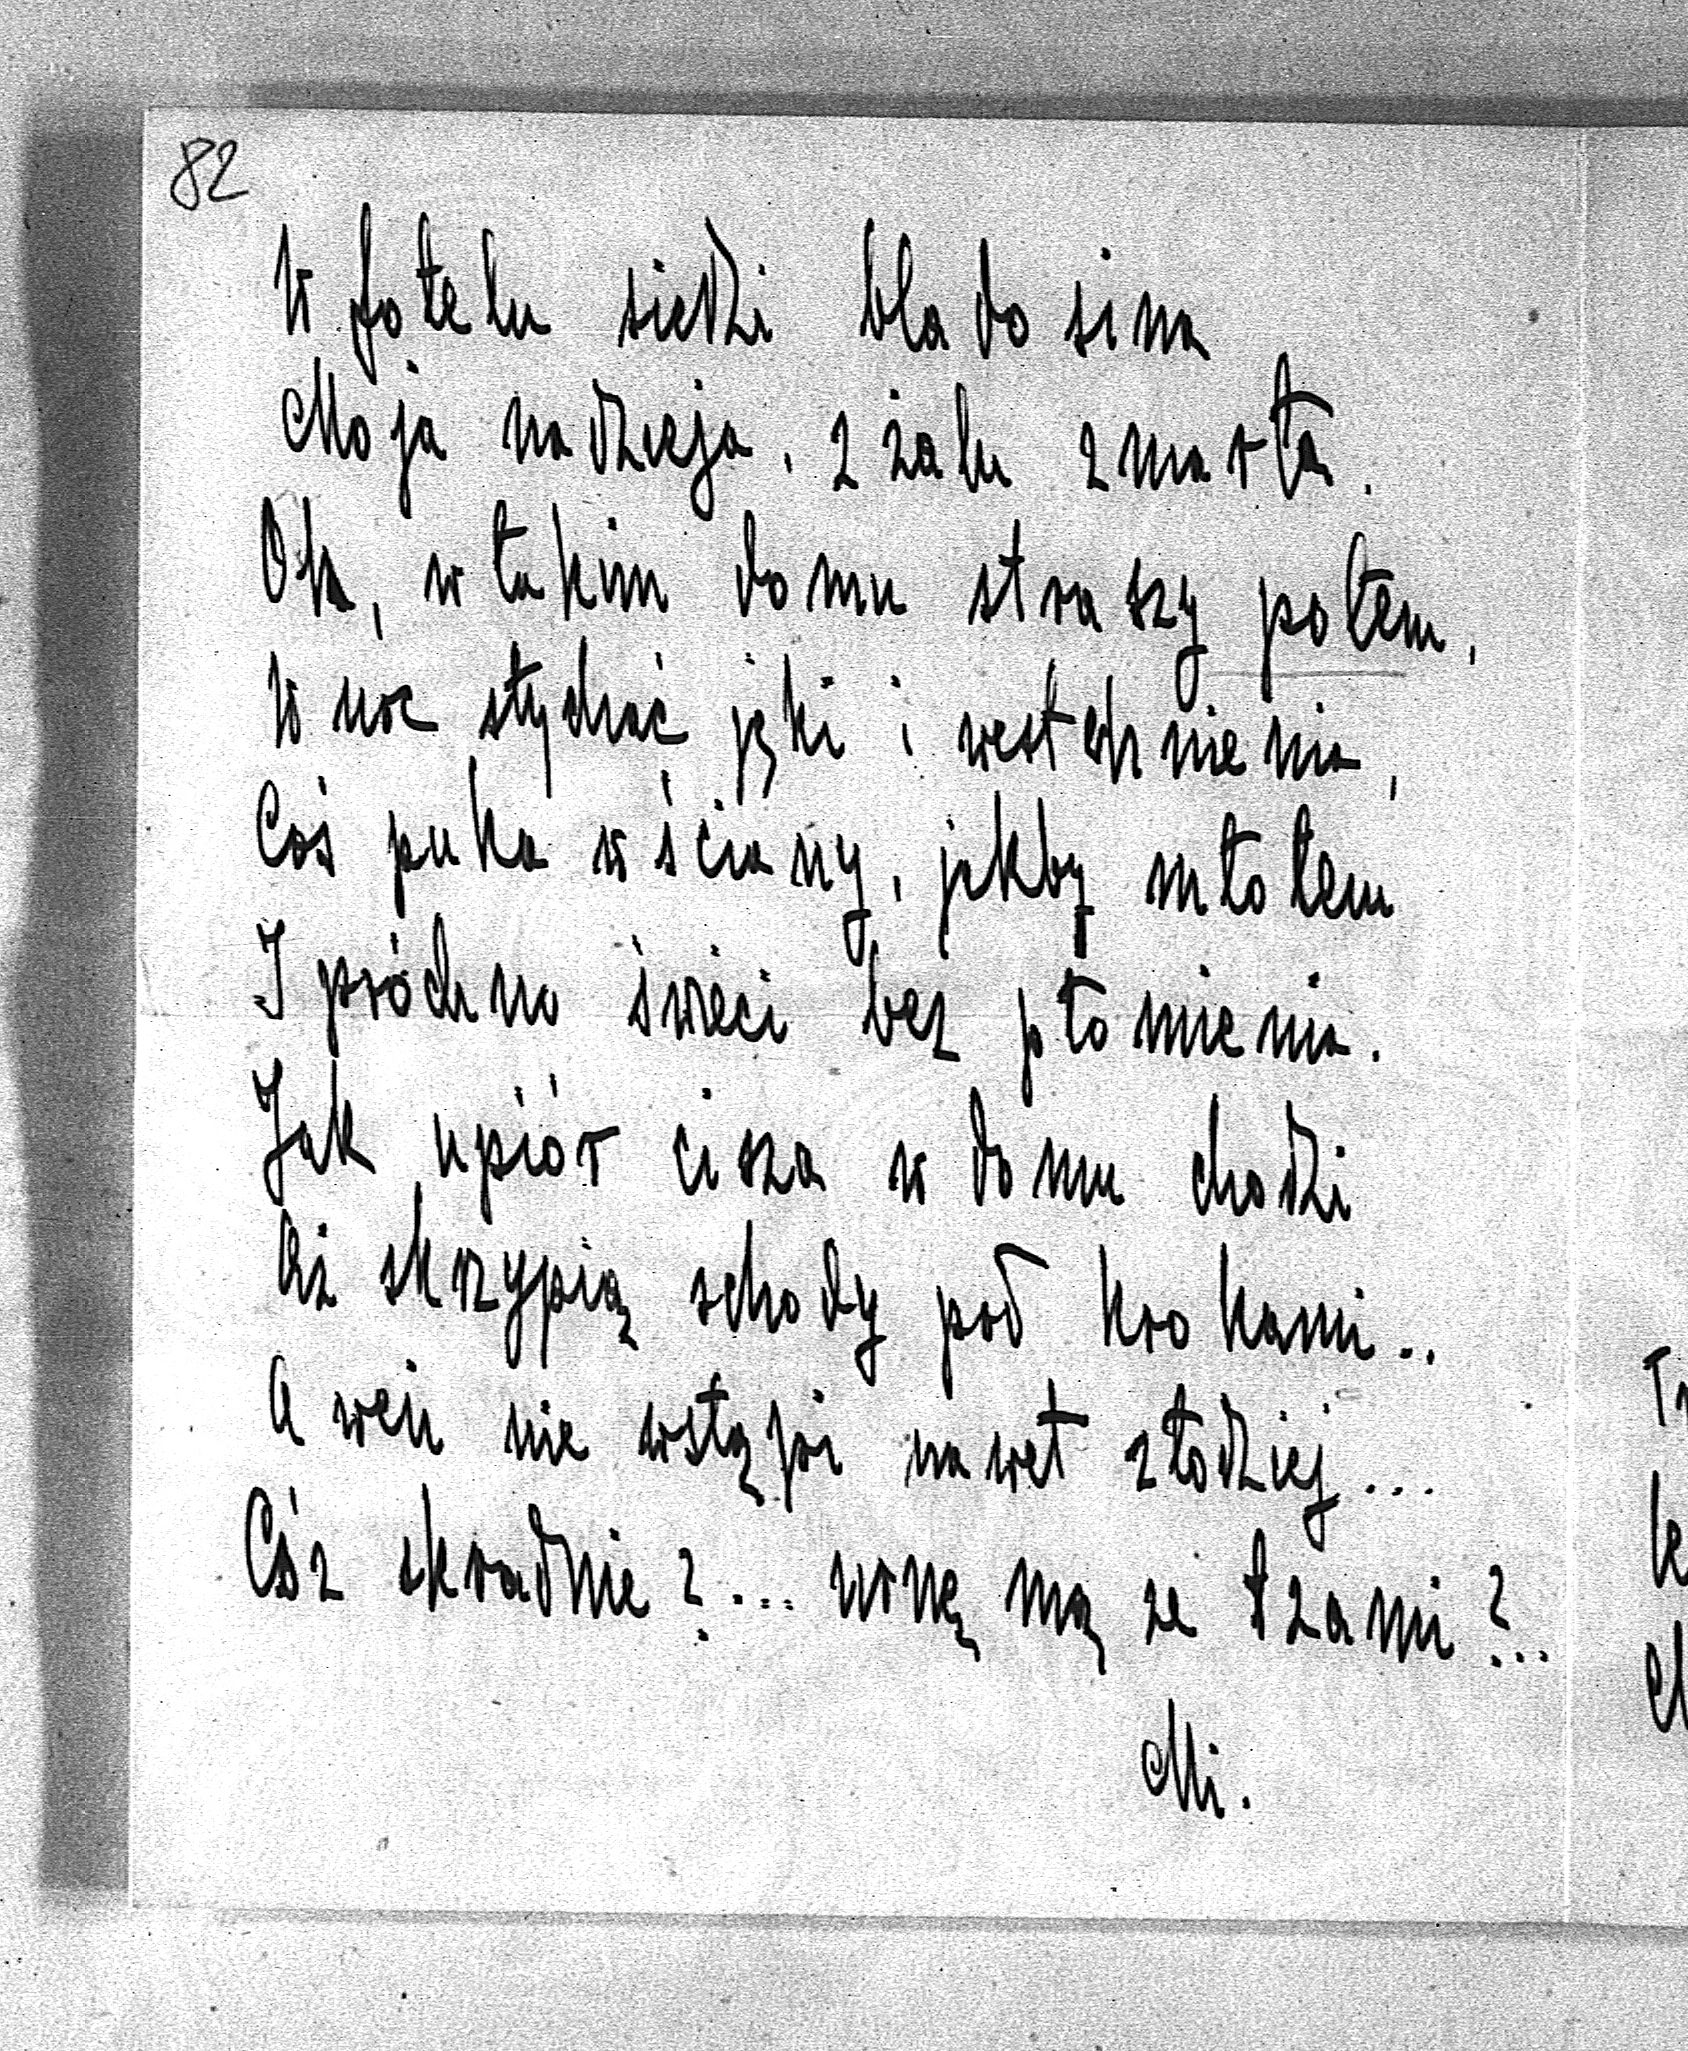 82
W fotelu siedzi blado sina
Moja nadzieja, z żalu zmarła.
Oh, w takim domu straszy potem,
W noc słychać jęki i westchnienia,
Coś puka w ściany, jakby młotem
I próchno świeci bez płomienia.
Jak upiór cisza w domu chodzi
Aż skrzypią schody pod krokami..
A weń nie wstąpi nawet złodziej...
Cóż skradnie?... urnę mą ze łzami?...
Mi.